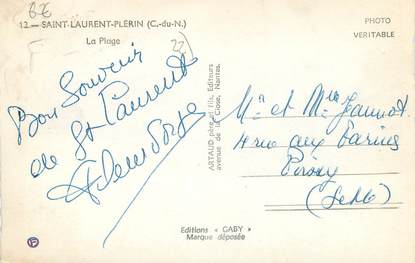 BE
12 - SAINT-LAURENT-PLÉRIN (C.-du-N.)
La Plage
PHOTO
VERITABLE
22)
Bon Souvenir
de St Laurent
ARTAUD père et fils, Editeurs
avenue de la Close, Nantes.
Mr et Mme Jannot
4 rue aux
(
Editions « GABY »
Marque déposée